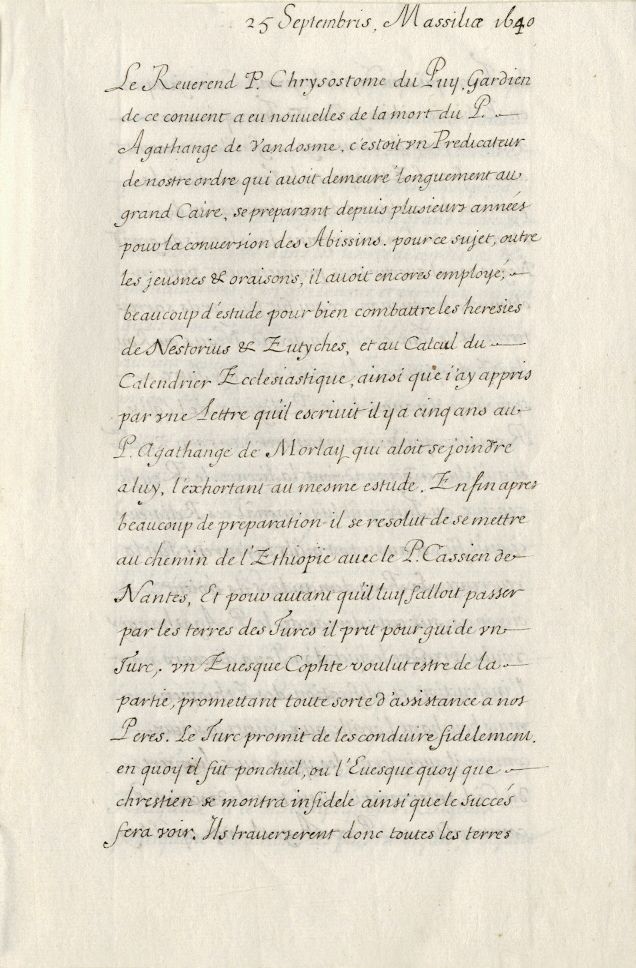 25 Septembris, Massiliæ 1640
Le Reuerend P. Chrysostome du Puy, Gardien
de ce conuent a eu nouuelles de la mort du P.
Agathange de Vandosme. c'estoit vn Predicateur
de nostre ordre qui auoit demeuré longuement au
grand Caire, se preparant depuis plusieurs années
pour la conuersion des Abissins. pour ce sujet, outre
les jeusnes & oraisons, il auoit encores employé,
beaucoup d'éstude pour bien combattre les heresies
de Nestorius & Eutyches, et au Calcul du
Calendrier Ecclesiastique, ainsi que i'ay appris
par vne Lettre qu'il escriuit il y a cinq ans au
P. Agathange de Morlay qui aloit se joindre
a luy, l'éxhortant au mesme estude. En fin apres
beaucoup de preparation il se resolut de se mettre
au chemin de l'Ethiopie auec le P. Cassien de
Nantes, Et pour autant qu'il luy falloit passer
par les terres des Turcs il prit pour guide vn
Turc, vn Euesque Cophte voulut estre de la
partie, promettant toute sorte d'assistance a nos
Peres. Le Turc promit de les conduire fidelement.
en quoy il fut ponctuel, ou l'Euesque quoy que
chrestien se montra infidele ainsi que le succés
fera voir. Ils trauerserent donc toutes les terres